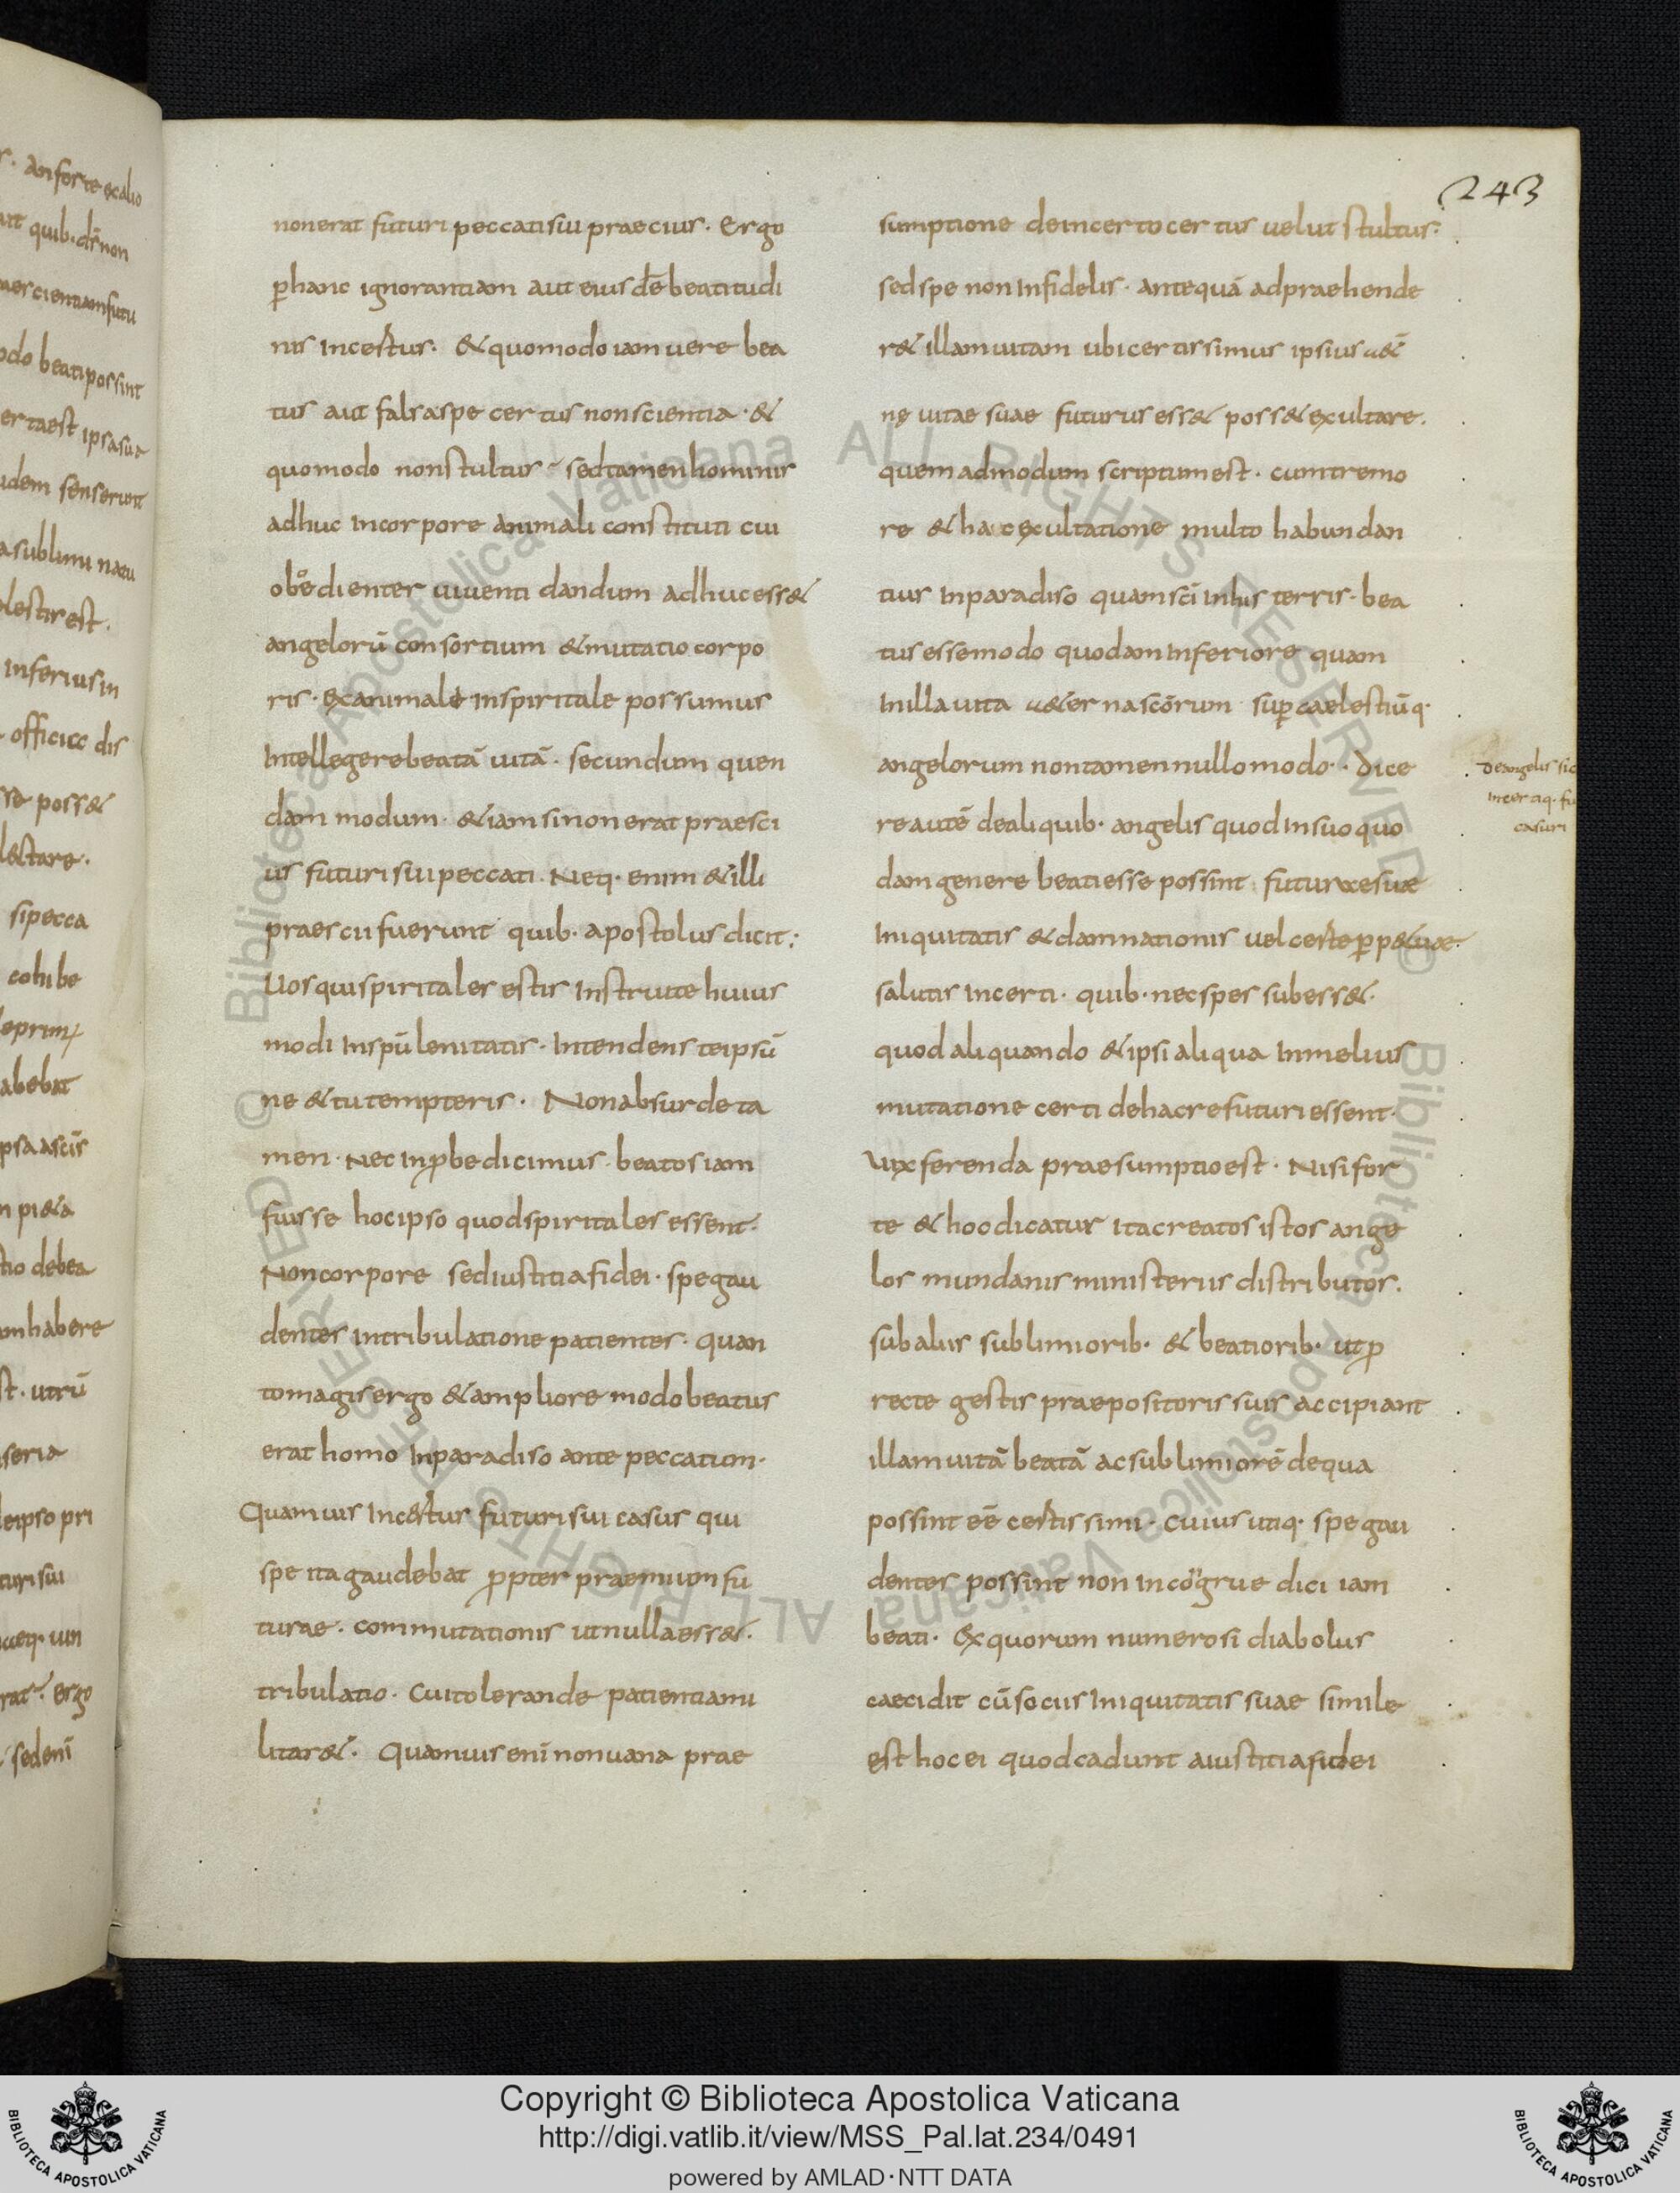 243
non erat futuri peccati sui praescius. Ergo
p hanc ignorantiam aut eius dē beatitudi
nis incertus. & quomodo iam uere bea
tus aut falsa spe certus non scientia. &
quomodo non stultus. sed tamen hominis
adhuc in corpore animali constituti cui
oboedienter uiuenti dandum adhuc ess&
angelorū consortium & mutatio corpo
ris. ex animale in spiritale possumus
intellegere beatā uitā. secundum quen
dam modum. & iam si non erat praesci
us futuri sui peccati. Neq. enim & illi
praescii fuerunt quib. apostolus dicit;
Uos qui spiritales estis instruite huius
modi in spū lenitatis. intendens te ipsū
ne & tu tempteris. Non absurde ta
men. Nec inprobe dicimus. beatos iam
fuisse hoc ipso quod spiritales essent.
Non corpore sed iustitia fidei. spe gau
dentes in tribulatione patientes. quan
to magis ergo & ampliore modo beatus
erat homo in paradiso ante peccatum.
Quamuis incertus futuri sui casus qui
spe ita gaudebat ppter praemium fu
turae. commutationis ut nulla ess&.
tribulatio. Cui tolerande patientia mi
litar&. Quamuis enī non uana prae
sumptione de incerto certus uelut stultus.
sed spe non infidelis. antequā adpraehende
r& illam uitam ubi certissimus ipsius a&ę
nę uitae suae futurus ess& poss& exultare.
quemadmodum scriptum est. cum tremo
re & hac exultatione multo habundan
tius in paradiso quam sci in his terris. bea
tus esse modo quodam inferiore quam
in illa uita a&erna scōrum supcaelestiūq.
angelorum non tamen nullo modo. Dice
re autē de aliquib. angelis quod in suo quo
dam genere beati esse possint futurae suae
iniquitatis & damnationis uel certe pp&uae.
salutis incerti. quib. nec spes subess&.
quod aliquando & ipsi aliqua in melius
mutatione certi de hac re futuri essent.
Uix ferenda praesumptio est. Nisi for
te & hoc dicatur ita creatos istos ange
los mundanis ministeriis distributos.
sub aliis sublimiorib. & beatiorib. ut p
recte gestis praepositoris suis accipiant
illam uitā beatā ac sublimiorē de qua
possint eē certissimi. cuius utiq. spe gau
dentes possint non incōgrue dici iam
beati. Ex quorum numero si diabolus
caecidit cū sociis iniquitatis suae simile
est hoc ei quod cadunt a iustitia fidei
De angelis
casuri
Copyright © Biblioteca Apostolica Vaticana
http://digi.vatlib.it/view/MSS_Pal.lat.234/0491
powered by AMLAD·NTT DATA
BIBLIOTECA APOSTOLICA VATICANA
BIBLIOTECA APOSTOLICA VATICANA